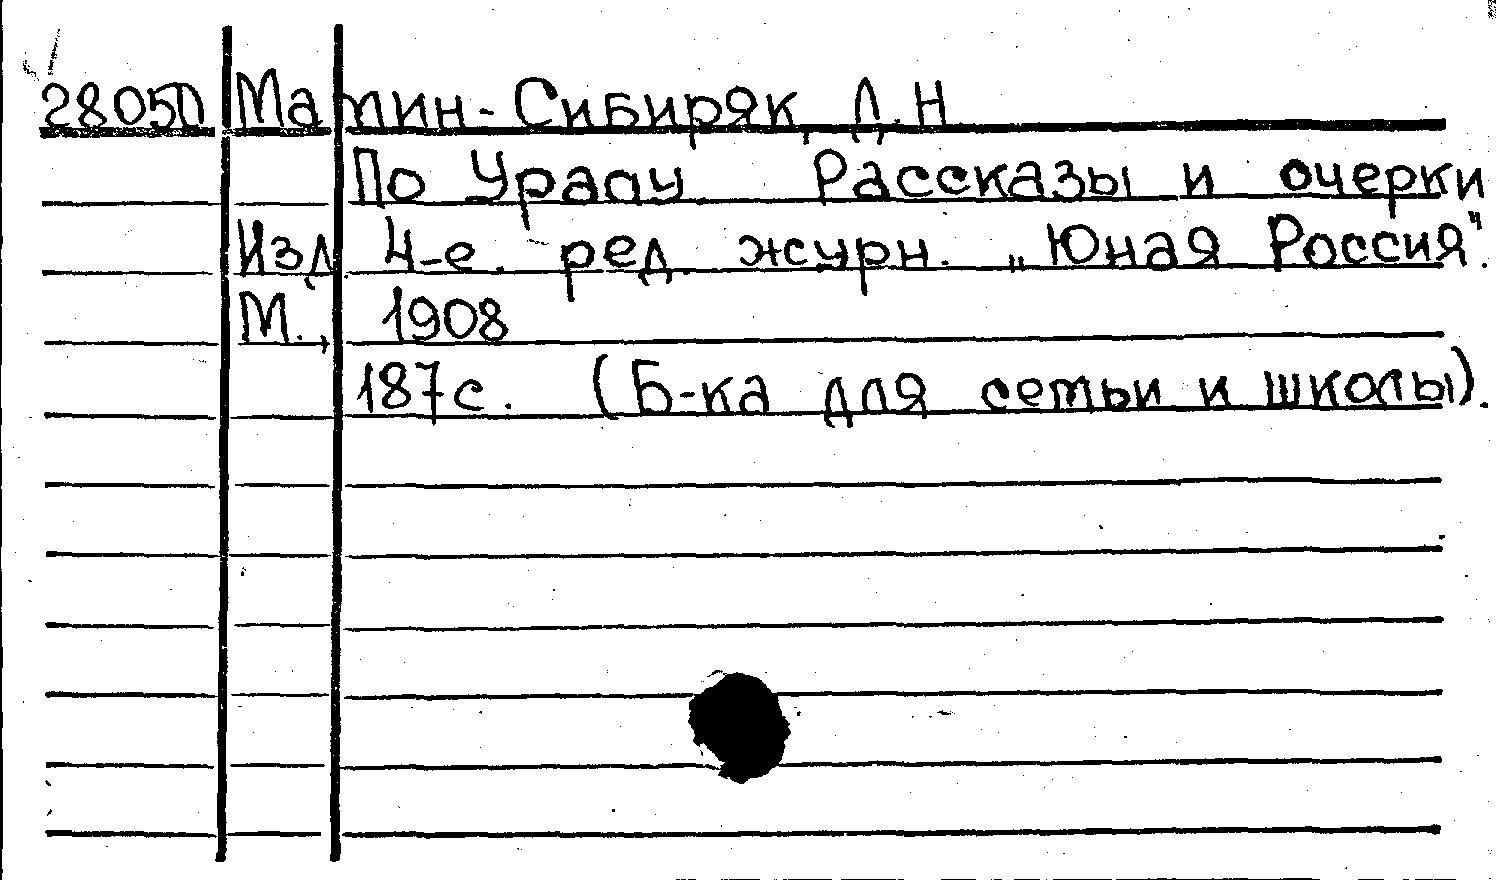 28050 Мамин-Сибиряк, Д.Н.
По Уралу Рассказы и очерки
Изд 4-е. ред. журн. „Юная Россия".
М., 1908
187с. (Б-ка для семьи и школы).